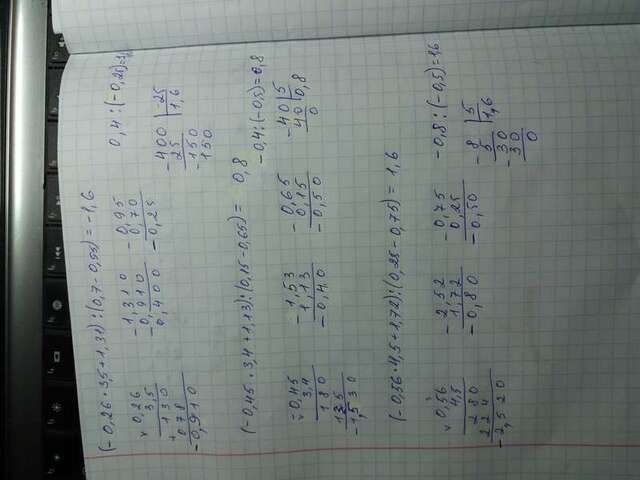 (-0,26·3,5+1,31):(0,7-0,95)=-1,6
× 0,26
3,5
130
+ 078
-0,910
-1,310
-0,910
0,400
-0,95
0,70
-0,25
0,4:(-0,25)=1,6
-400 |-25
25 1,6
-150
150
(-0,45·3,4+1,13):(0,15-0,65)= 0,8
-0,4:(-0,5)=0,8
× -0,45
3,4
180
135
-1,530
-1,53
1,13
-0,40
-0,65
0,15
-0,50
-40 |5
40 0,8
0
(-0,56·4,5+1,72):(0,25-0,75)= 1,6
× 0,56
4,5
280
224
-2,520
-2,52
1,72
-0,80
-0,75
0,25
-0,50
-0,8:(-0,5)=1,6
-8 |5
5 1,6
-30
30
0